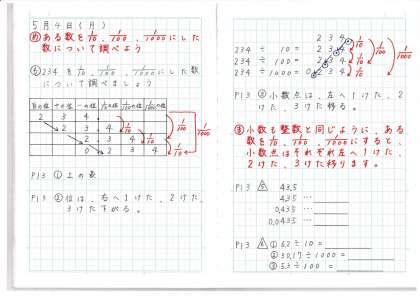 5月4日(月)
め ある数を1/10、1/100、1/1000にした
数について調べよう
234を1/10、1/100、1/1000にした数
について調べましょう
百の位 十の位 一の位 1/10の位 1/100の位 1/1000の位
2 3 4 .
2 3 . 4
. 2 3 4
0 2 3 4
1/10 1/10 1/10 1/100 1/1000
P13 ①上の表
P13 ②位は、右へ1けた、2けた、
3けた下がる。
2 3 4
234÷ 10= 2 3 4
234÷ 100= 2 3 4
234÷1000=0 2 3 4
1/10 1/10 1/10 1/100 1/1000
P13 ③小数点は、左へ1けた、2
けた、3けた移る。
ま 小数も整数と同じように、ある
数を1/10、1/100、1/1000にすると、
小数点はそれぞれ左へ1けた、
2けた、3けた移ります。
P13 5 43.5
4.35 …
0.435 …
0.0435 …
P13 6 ① 6.2÷10=
② 30.17÷1000=
③ 5.3÷100=